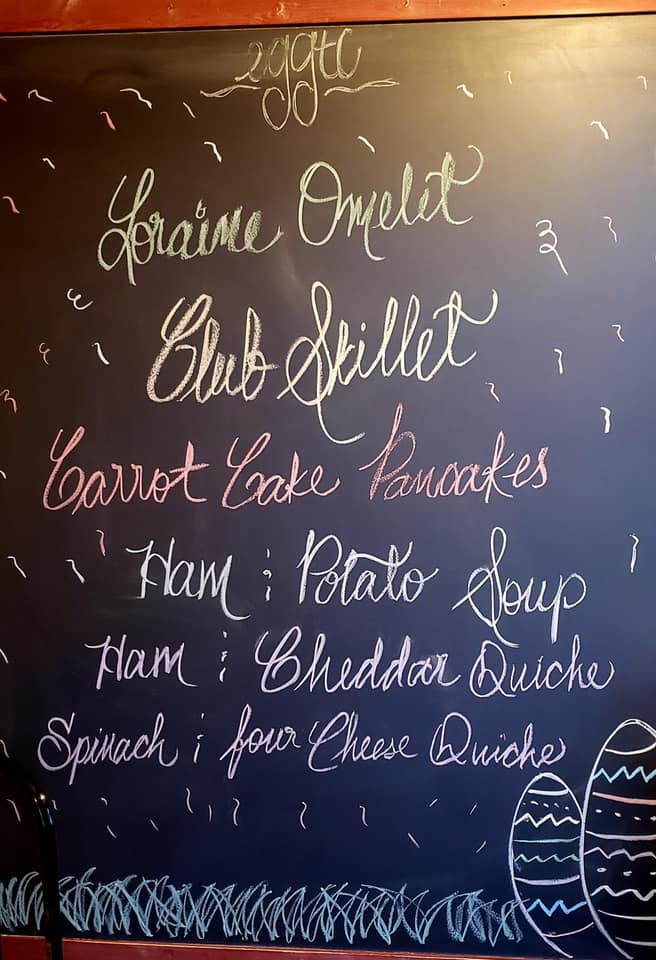 eggtc
Loraine Omelet
Club Skillet
Carrot Cake Pancakes
Ham & Potato Soup
Ham & Cheddar Quiche
Spinach & four Cheese Quiche